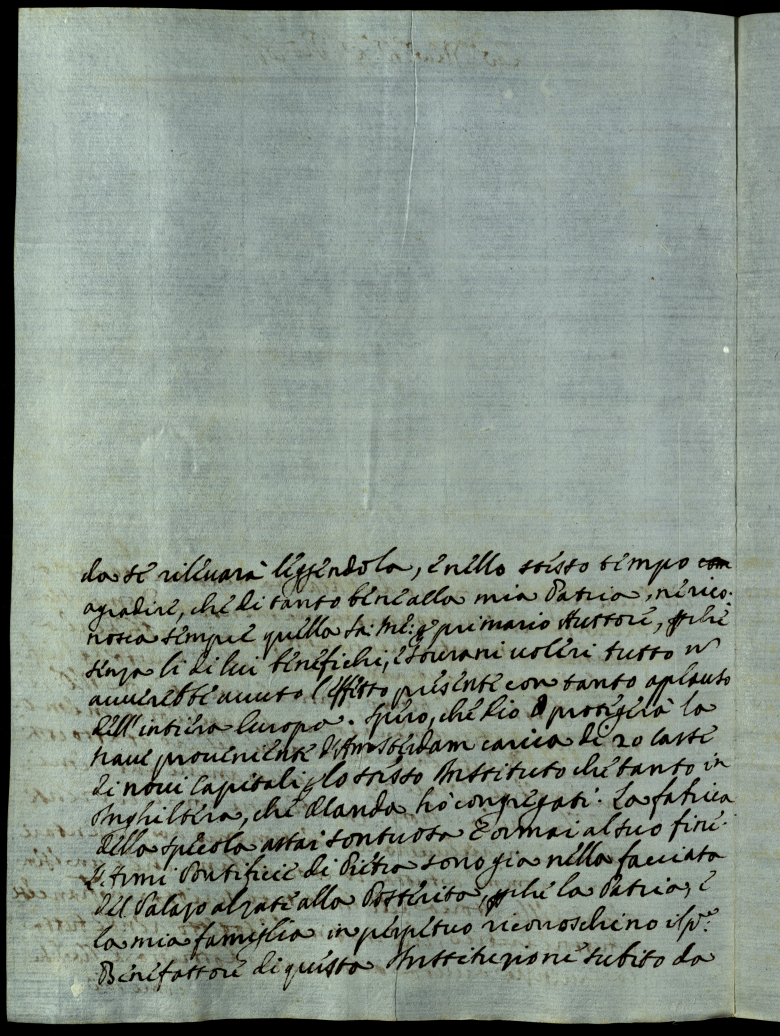 da sé rilevarà leggendola, e nello stesso tempo
agradire, che di tanto bene alla mia Patria, ne rico-
nosca sempre quella Sa: Me: p primario Auttore, pche
senza li di lui benefichi, e sourani uoleri tutto n̄
auuerebbe auuto l'effetto presente con tanto aplauso
dell'intiera Europa. Spero, che Dio proteggerà la
naue proueniente d'Amsterdam carica di 20 casse
di noui Capitali p lo stesso Instituto che tanto in
Inghiltera, che Olanda hò congregati. La fabrica
della specola assai sontuosa è ormai al suo fine.
L'Armi Pontificie di Pietra sono gia nella facciata
del Palazo alzate alla Posterità, pche la Patria, e
la mia famiglia in perpetuo riconoschino il pº:
Benefattore di questa Instituzione subito da